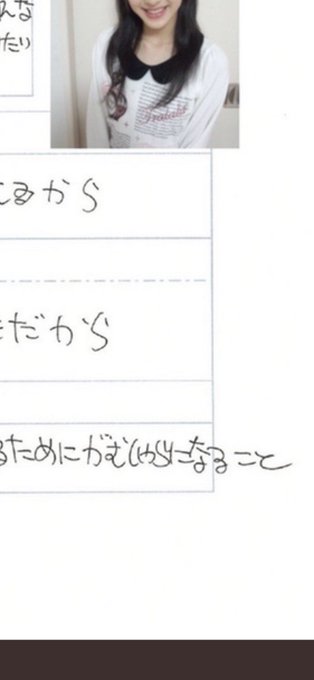 んな
たい
るから
だから
るためにがむしゃらになること